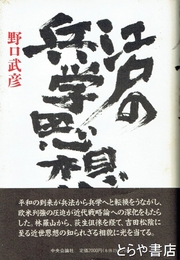 江戸の
兵学思想
野口武彦
中央公論社
定価2000円
平和の到来が兵法から兵学へと転換をうながし、
欧米列強の圧迫が近代戦略論への深化をもたら
した。林羅山から、荻生徂徠を経て、吉田松陰に
至る近世思想の知られざる相貌に光を当てる。
とらや書房